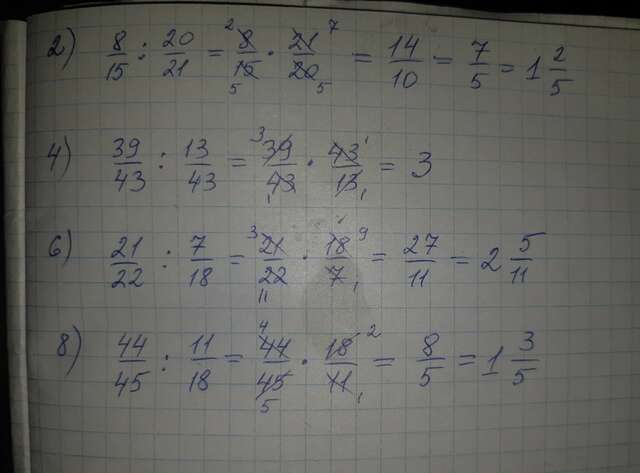 2) 8/15 : 20/21 = 8/15 · 21/20 = 14/10 = 7/5 = 1 2/5
4) 39/43 : 13/43 = 39/43 · 43/13 = 3
6) 21/22 : 7/18 = 21/22 · 18/7 = 27/11 = 2 5/11
8) 44/45 : 11/18 = 44/45 · 18/11 = 8/5 = 1 3/5